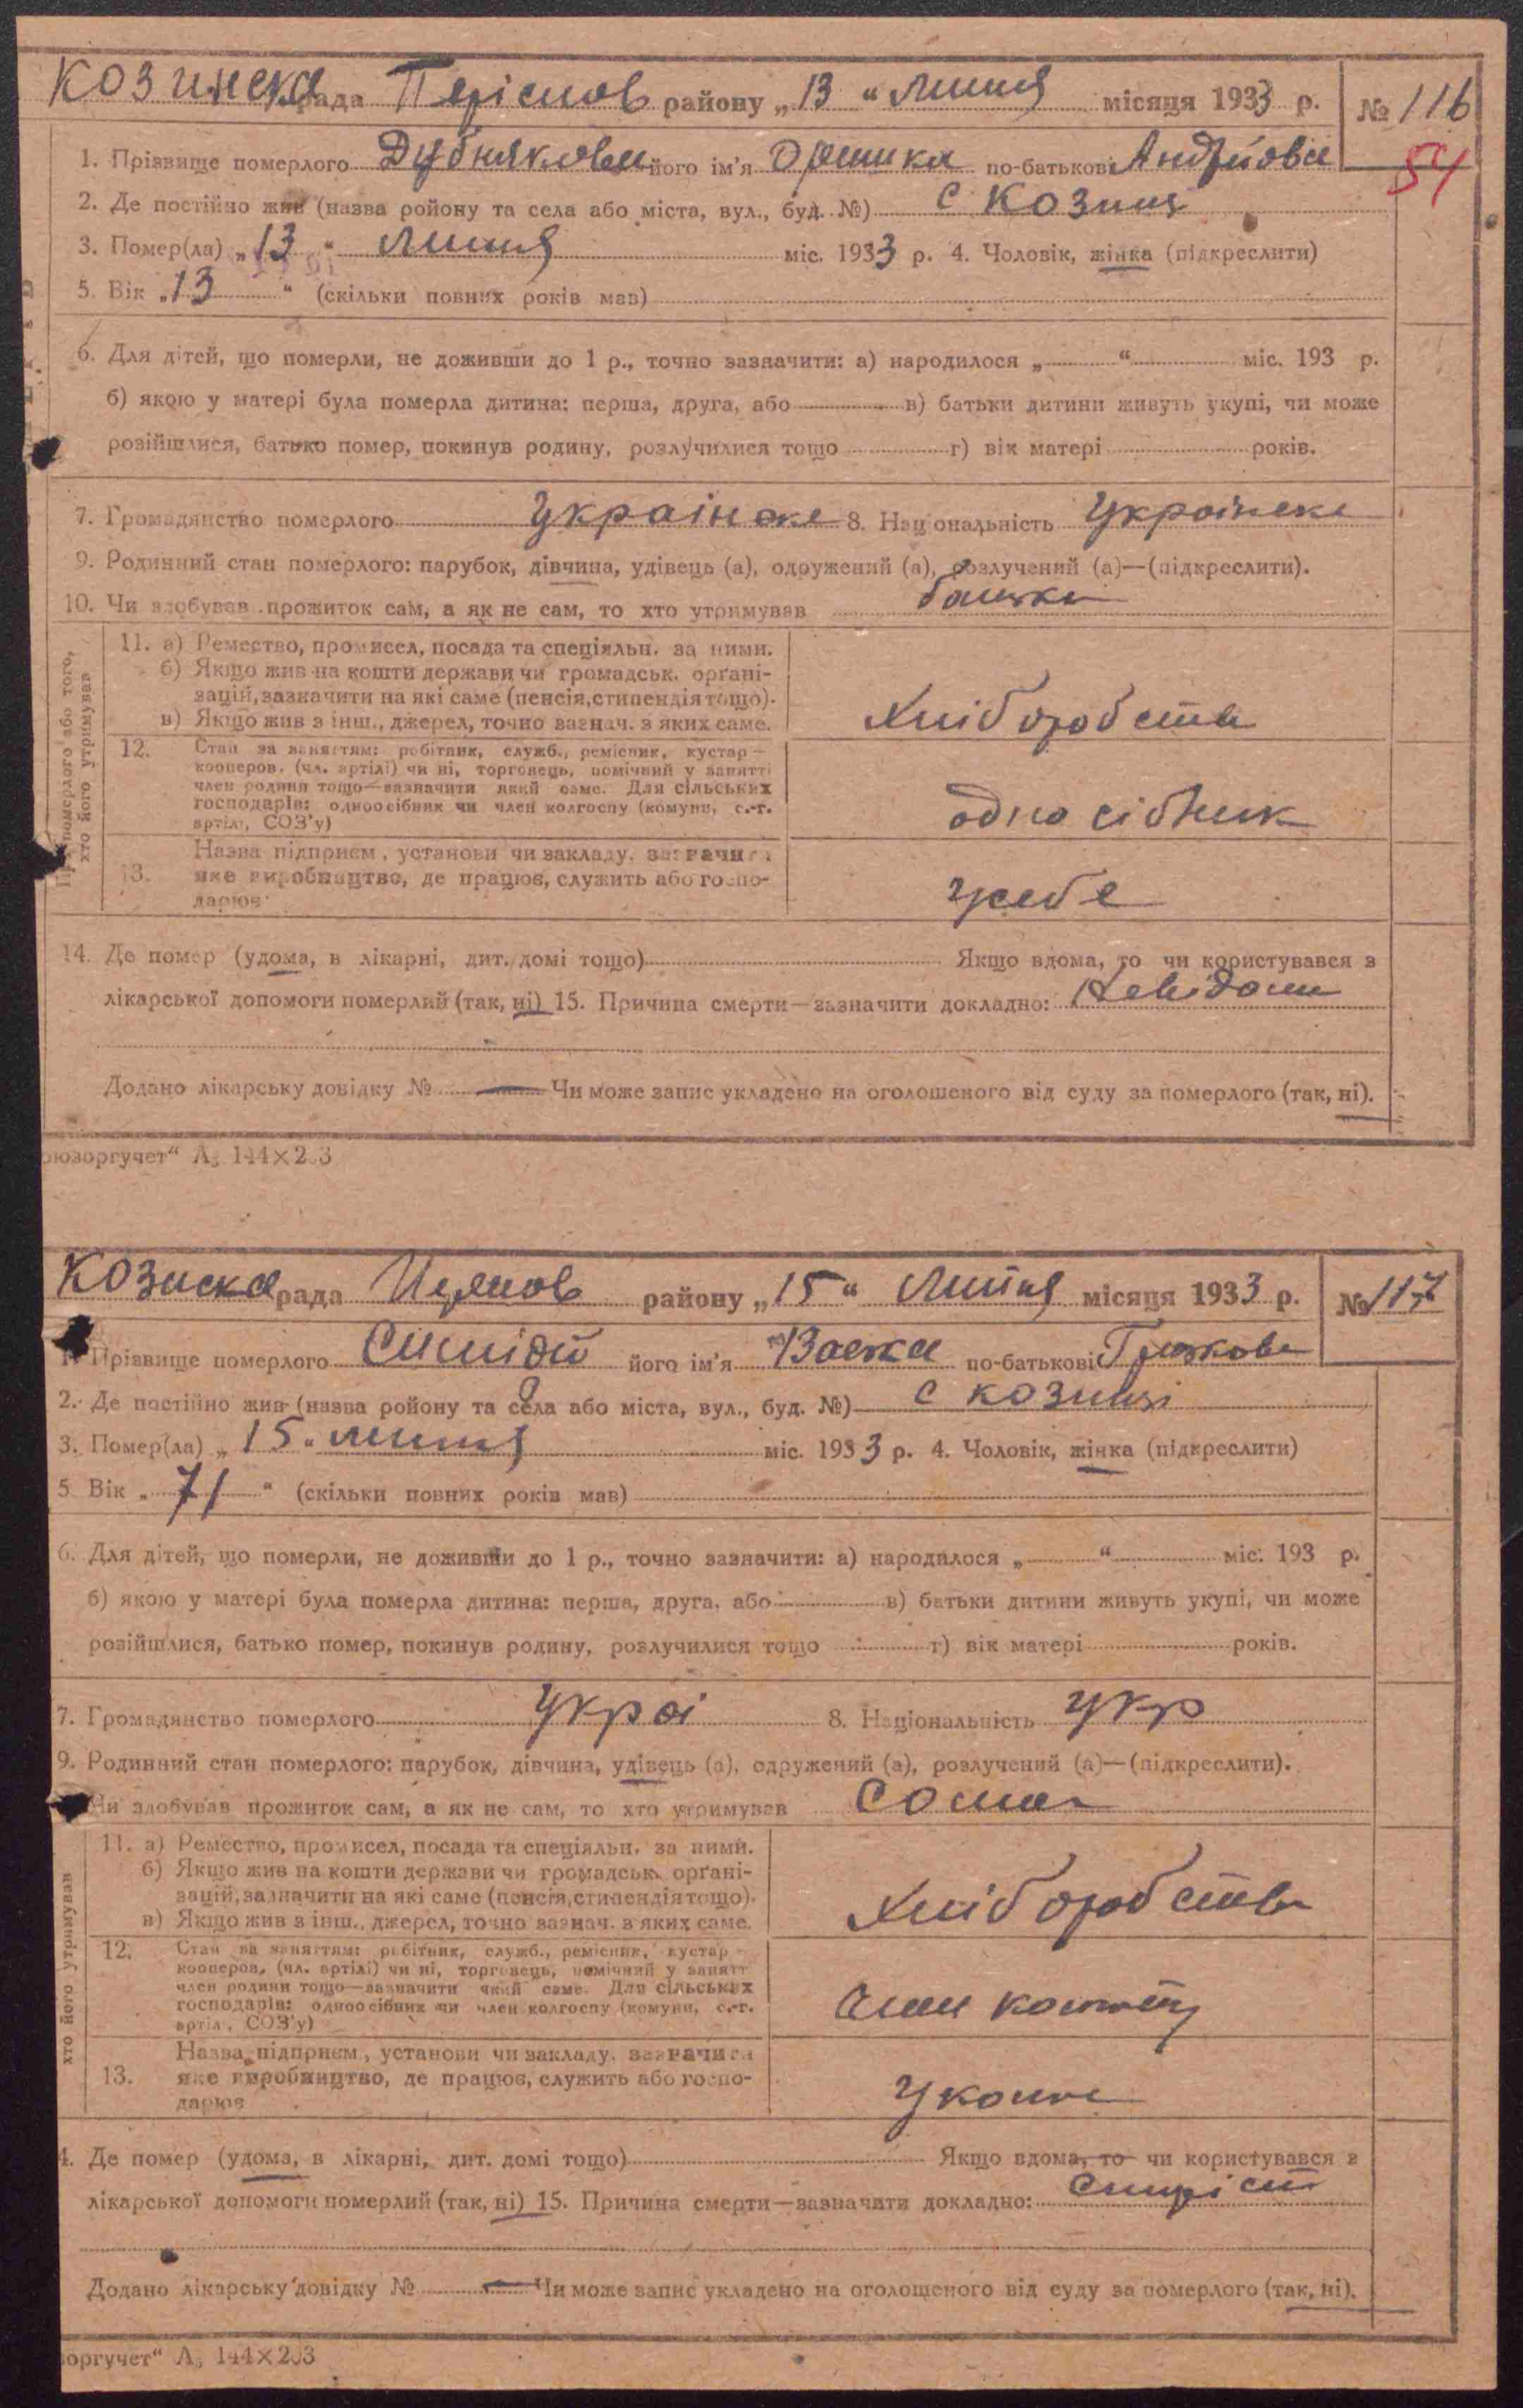 Козинска рада Переяслов району „13“ липня місяця 1933 р. № 116
54
1. Прізвище померлого його ім'я Оришка по-батькові Андрійовна
2. Де постійно жив (назва ройону та села або міста, вул., буд. №) с Козинці
3. Помер(ла) „13“ липня міс. 1933 р. 4. Чоловік, жінка (підкреслити)
5. Вік „13“ (скільки повних років мав)
6. Для дітей, що померли, не доживши до 1 р., точно зазначити: а) народилося „ “ міс. 193 р.
б) якою у матері була померла дитина: перша, друга, або в) батьки дитини живуть укупі, чи може
розійшлися, батько помер, покинув родину, розлучилися тощо г) вік матері років.
7. Громадянство померлого Українске 8. Національність Українске
9. Родинний стан померлого: парубок, дівчина, удівець (а), одружений (а), розлучений (а)—(підкреслити).
10. Чи здобував прожиток сам, а як не сам, то хто утримував батько
Про померлого або того, хто його утримував
11. а) Ремество, промисел, посада та спеціяльн. за ними.
б) Якщо жив на кошти держави чи громадськ. орґані-
зацій, зазначити на які саме (пенсія, стипендія тощо).
в) Якщо жив з інш., джерел, точно вазнач. з яких саме.
Хліборобство
12. Стан за заняттям: робітник, служб., ремісник, кустар—
кооперов. (чл. артілі) чи ні, торговець, помічний у занятті
член родини тощо—зазначити який саме. Для сільських
господарів: одноосібник чи член колгоспу (комуни, с.-г.
артілі, СОЗ'у)
односібник
13. Назва підприєм., установи чи закладу, зазначити
яке виробництво, де працює, служить або госпо-
дарює
усебе
14. Де помер (удома, в лікарні, дит. домі тощо) Якщо вдома, то чи користувався з
лікарської допомоги померлий (так, ні) 15. Причина смерти—зазначити докладно:
Додано лікарську довідку № — Чи може запис укладено на оголошеного від суду за померлого (так, ні).
оюзоргучет“ А₅ 144×203
Козиска рада району „15“ липня місяця 1933 р. № 117
1. Прізвище померлого його ім'я по-батькові
2. Де постійно жив (назва ройону та села або міста, вул., буд. №) с Козинці
3. Помер(ла) „15“ липня міс. 1933 р. 4. Чоловік, жінка (підкреслити)
5. Вік „71“ (скільки повних років мав)
6. Для дітей, що померли, не доживши до 1 р., точно зазначити: а) народилося „ “ міс. 193 р.
б) якою у матері була померла дитина: перша, друга, або в) батьки дитини живуть укупі, чи може
розійшлися, батько помер, покинув родину, розлучилися тощо г) вік матері років.
7. Громадянство померлого Украі 8. Національність Укр
9. Родинний стан померлого: парубок, дівчина, удівець (а), одружений (а), розлучений (а)—(підкреслити).
Чи здобував прожиток сам, а як не сам, то хто утримував сома
хто його утримував
11. а) Ремество, промисел, посада та спеціяльн. за ними.
б) Якщо жив на кошти держави чи громадськ. орґані-
зацій, зазначити на які саме (пенсія, стипендія тощо).
в) Якщо жив з інш., джерел, точно вазнач. з яких саме.
Хліборобство
12. Стан за заняттям: робітник, служб., ремісник, кустар—
кооперов. (чл. артілі) чи ні, торговець, помічний у занятті
член родини тощо—зазначити який саме. Для сільських
господарів: одноосібник чи член колгоспу (комуни, с.-г.
артілі, СОЗ'у)
член
13. Назва підприєм., установи чи закладу, зазначити
яке виробництво, де працює, служить або госпо-
дарює
4. Де помер (удома, в лікарні, дит. домі тощо) Якщо вдома, то чи користувався з
лікарської допомоги померлий (так, ні) 15. Причина смерти—зазначити докладно: старіст
Додано лікарську довідку № — Чи може запис укладено на оголошеного від суду за померлого (так, ні).
зоргучет“ А₅ 144×203